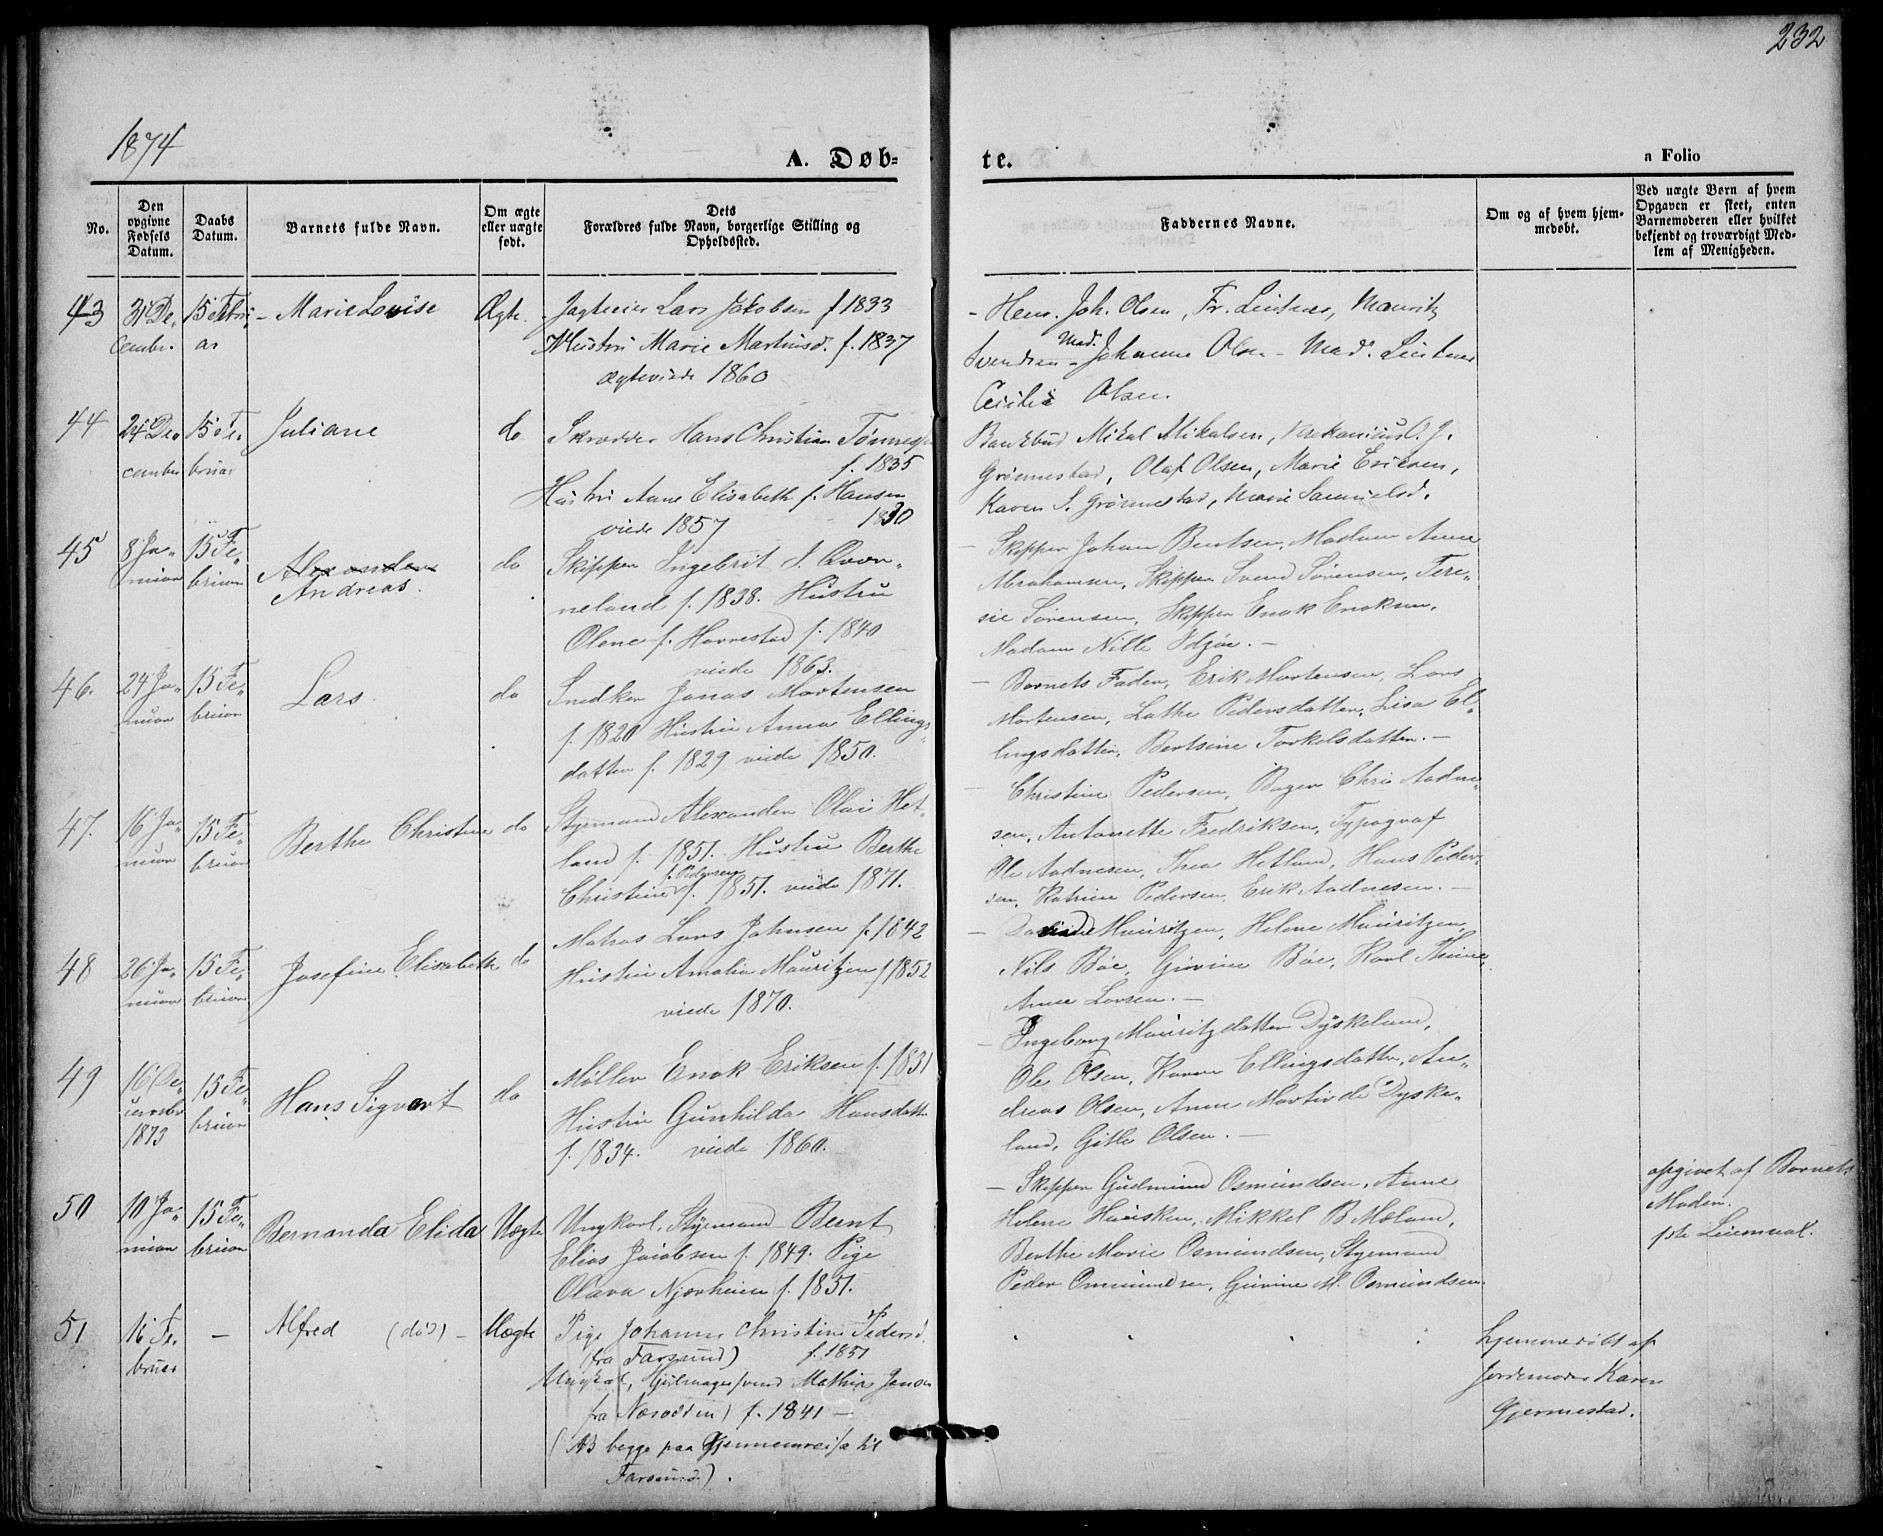 232
1874
A. Døb=
te.
a Folio
No.
Den opgivne Fødsels Datum.
Daabs Datum.
Barnets fulde Navn.
Om ægte eller uægte født.
Dets
Forældres fulde Navn, borgerlige Stilling og
Opholdssted.
Faddernes Navne.
Om og af hvem hjem-
medøbt.
Ved uægte Børn af hvem
Opgaven er skeet, enten
Barnemoderen eller hvilket
bekjendt og troværdigt Med-
lem af Menigheden.
43
31 De-
cembr.
15 Febru-
ar
Marie Lovise
Ægte.
Jagteier Lars Jakobsen f 1833
Hustru Marie Martinusd. f. 1837
ægteviede 1860
Joh. Olsen, Fr. Leutnes, Mauritz
Svendsen - Mad. Johanne Olsen - Mad. Leutnes
Olsen.
44
24 De-
cember
15 Fe-
bruar
Juliane
do
Skrædder Hans Christian Tønnes
f. 1835
Hustru Anne Elisabeth f. Hansen
viede 1857 1830
Bankbud Mikal Mikalsen, Mekanicus O. J.
Grønnestad, Olaf Olsen, Marie Eriksen,
Karen S. Grønnestad, Marie Samuelsd.
45
8 Ja-
nuar
15 Fe-
bruar
Alexander
Andreas.
do
Skipper Ingebrit J. Qvæn-
neland f. 1838. Hustru
Olene f. Havrestad f. 1840
viede 1863.
- Skipper Johan Bentsen, Madam Anne
Abrahamsen, Skipper Svend Sørensen, Tere-
sie Sørensen, Skipper Enok Enoksen,
Madam Nille -
46.
24 Ja-
nuar
15 Fe-
bruar
Lars.
do
Snedker Jonas Mortensen
f. 1820 Hustru Anna Ellings-
datter f. 1829 viede 1850.
- Barnets Fader, Erik Mortensen, Lars
Mortensen, Lathe Pedersdatter, Lisa El-
lingsdatter, Bertsine Torkelsdatter. -
47.
16 Ja-
nuar
15 Fe-
bruar
Berthe Christine
do
Styrmand Alexander Olai Het-
land f. 1851. Hustru Berthe
Christine f. Pedersen f. 1851. viede 1871.
- Christine Pedersen, Bager Chri Aadne-
sen, Antonette Fredriksen, Typograf
Ole Aadnesen, Thea Hetland, Hans Peder-
sen, Katrine Pedersen, Erik Aadnesen. -
48
26 Ja-
nuar
15 Fe-
bruar
Josefine Elisabeth
do
Matros Lars Johnsen f. 1842
Hustru Amalia Mauritzen f 1852
viede 1870.
- Mauritzen, Helene Mauritzen,
Nils Bøe, Gurine Bøe, Karl Thime,
Anne Larsen. -
49
16 De-
cember
1873
15 Fe-
bruar
Hans Sigvart
do
Møller Enok Eriksen f. 1831
Hustru Gunhilda Hansdatter
f. 1834. viede 1860.
- Ingeborg Mauritzdatter Dyskeland,
Ole Olsen, Karen Ellingsdatter, An-
dreas Olsen, Anne Martinde Dyske-
land, Gitle Olsen. -
50
10 Ja-
nuar
15 Fe-
bruar
Bernanda Elida
Uægte
Ungkarl, Styrmand Bernt
Elias Jacobsen f. 1849. Pige
Olava Njærheim f. 1851.
- Skipper Gudmund Osmundsen, Anne
Helene Hausken, Mikkel B. Moland,
Berthe Marie Osmundsen, Styrmand
Peder Osmundsen, Gurine M. Osmundsen.
opgivet af Barnets
Moder.
1ste Leiermaal.
51
16 Fe-
bruar
-
Alfred (død) -
Uægte
Pige Johanne Christine Pedersd.
(fra Farsund) f. 1851
Ungkarl, Hjulmagersvend Mathias Jensen
fra Næsodden) f. 1841 -
(NB begge paa Gjennemreise til
Farsund).
hjemmedøbt af
Jordemoder Karen
Gjermestad.